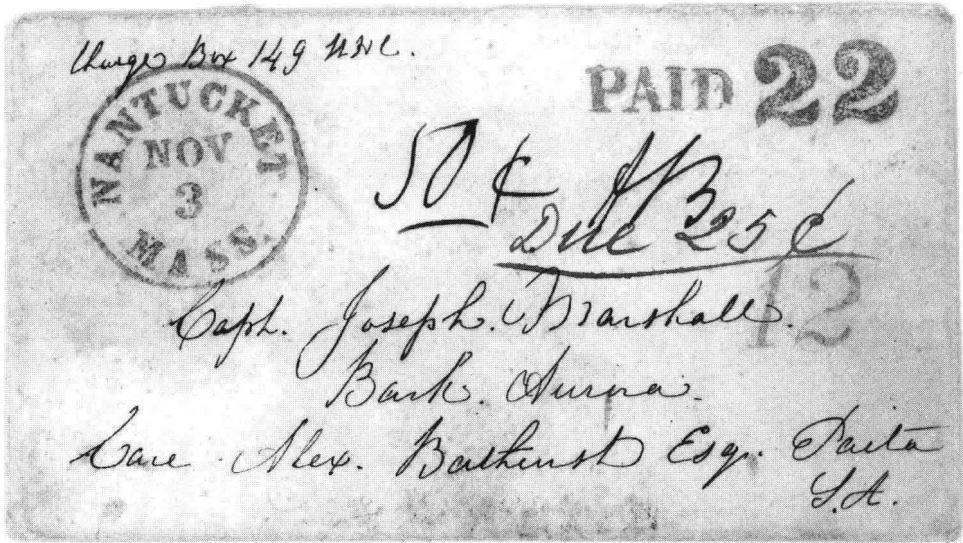 Charge Box 149
NANTUCKET
NOV
3
MASS.
PAID 22
50 ¢
Due 25 ¢
12
Capt. Joseph. Marshall.
Bark. Aurora.
Care. Alex. Bathurst Esqr. Paita
S.A.